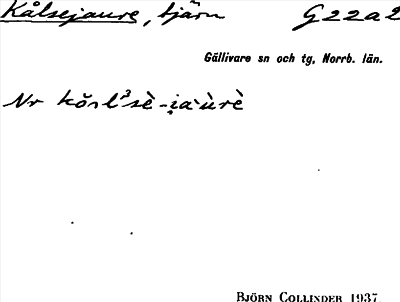 Kålsejaure, tjärn G22a2
Gällivare sn och tg, Norrb. län.
Nr kŏrl³sè-i̯a`ùrè
BJÖRN COLLINDER 1937.